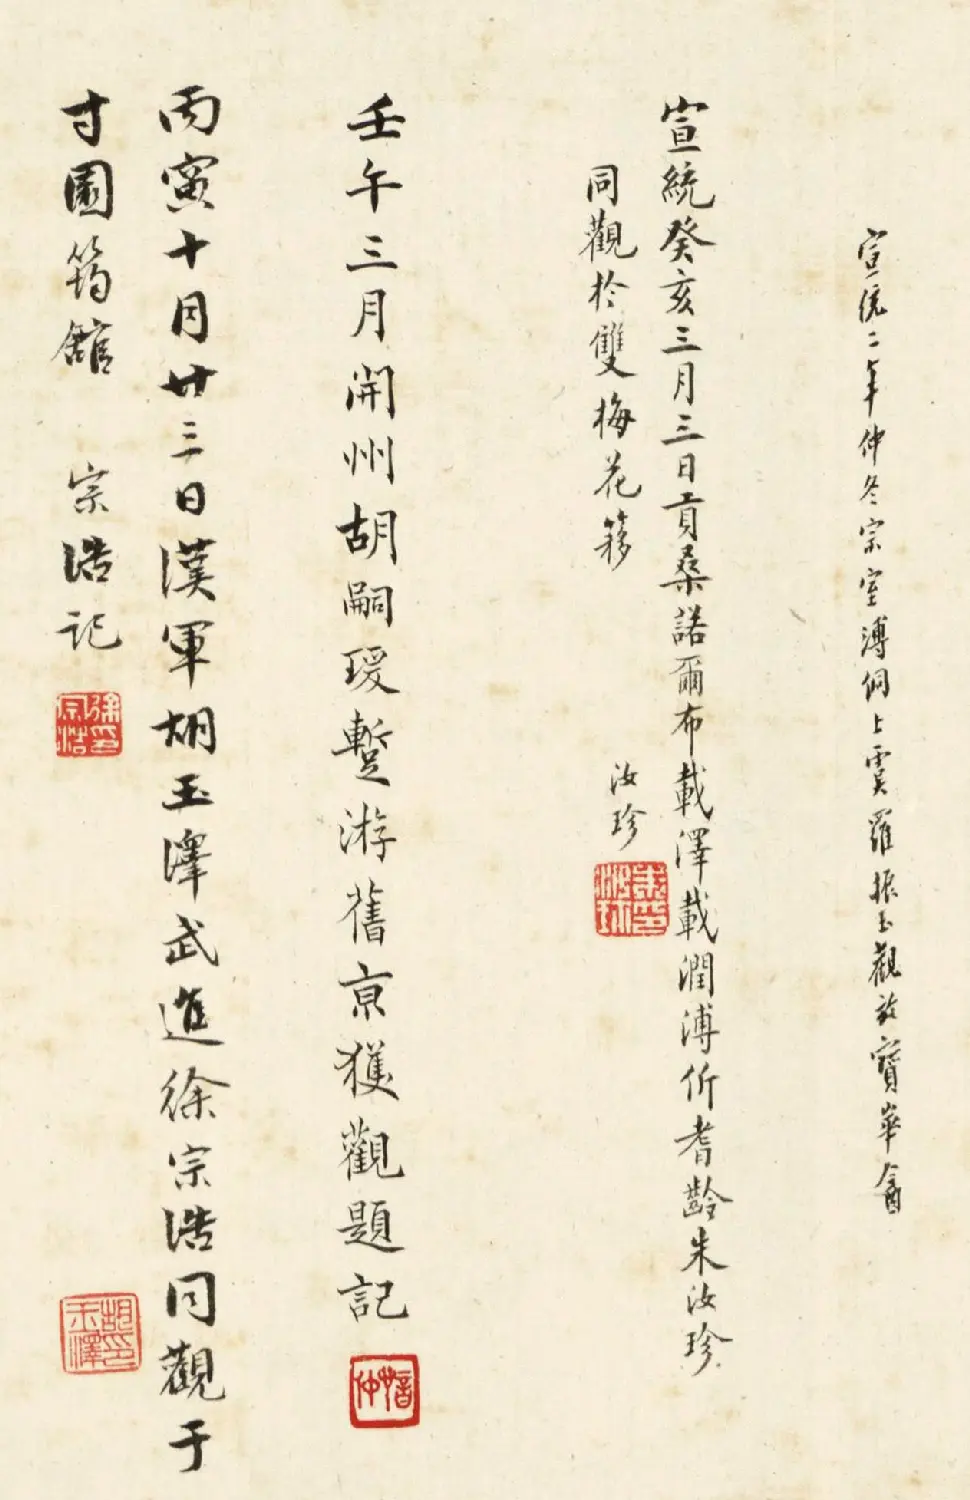 宣統二年仲冬宗室溥侗上虞羅振玉觀於寶華盦
宣統癸亥三月三日貢桑諾爾布載澤載潤溥伒耆齡朱汝珍
同觀於雙梅花簃
汝珍
朱印汝珍
壬午三月開州胡嗣瑗暫游舊京獲觀題記
丙寅十月廿三日漢軍胡玉澤武進徐宗浩同觀于
寸園筠館 宗浩記
徐印宗浩
胡印玉澤